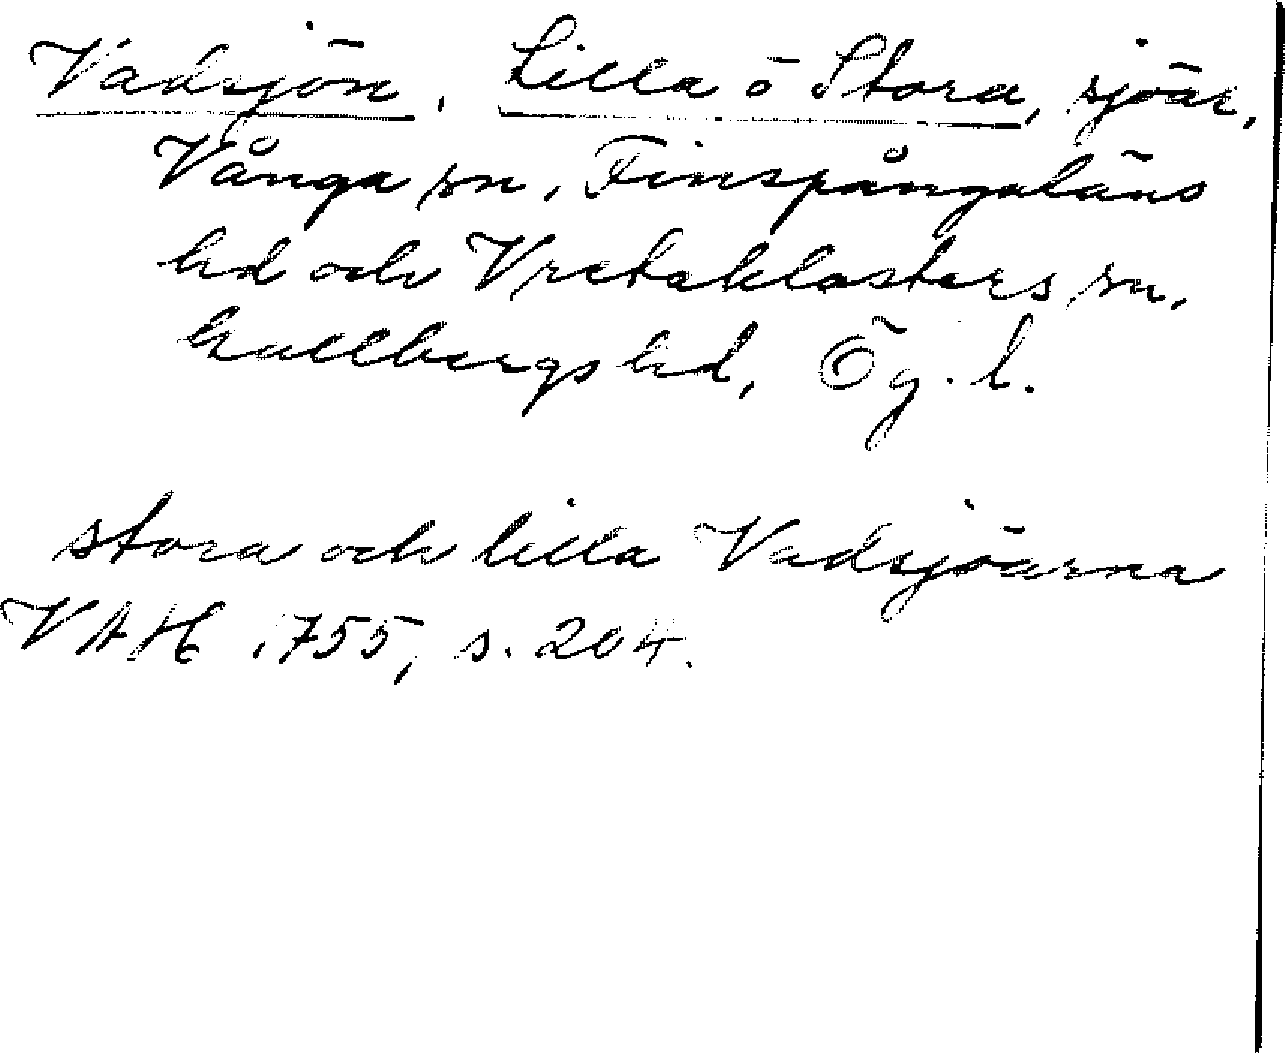 Vadsjön, Lilla o Stora, sjöar,
Vånga sn, Finspångaläns
hd och Vretaklosters sn,
Gullbergs hd, Ög. l.
stora och lilla Vadsjöarna
VAH 1755, s. 204.